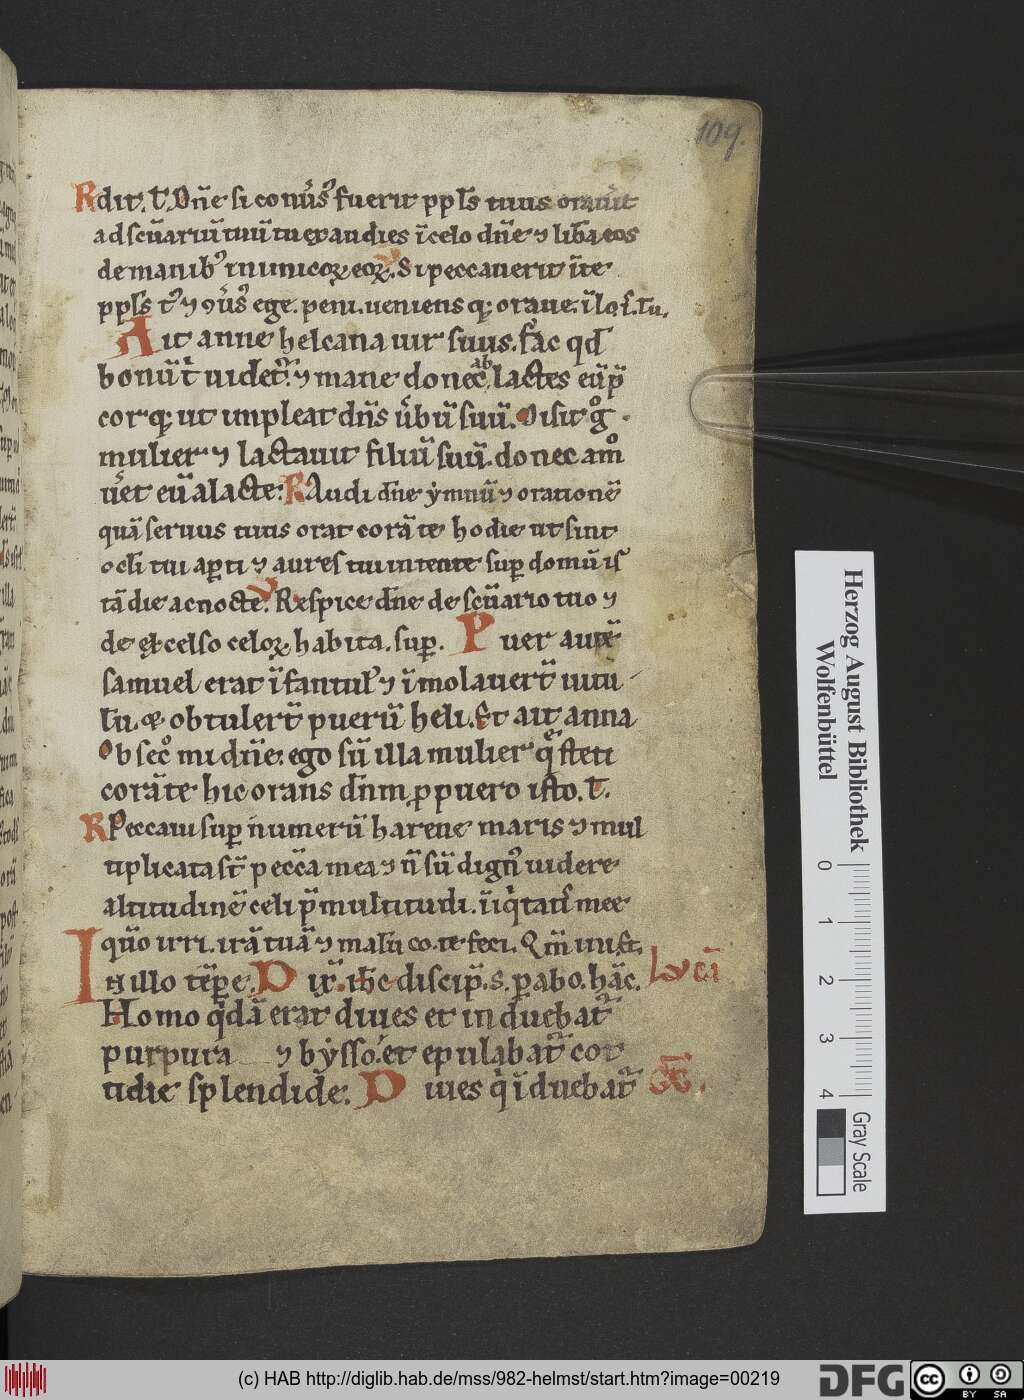 109.
Rdit. t. Dn̄e si conūsꝰ fuerit ppl̄s tuus orauit
ad scūariū tuū tu exaudies īcelo dn̄e ⁊ libā eos
de manibꝰ inimicoꝝ eoꝝ. V Si peccauerit īte
ppl̄s tꝰ ⁊ ꝯūsꝰ ege. peni. ueniens qꝫ oraue. ī lo. i. tu.
Ait anne helcana uir suus. fac qd̄
bonū t̄ uidet᷑. ⁊ mane donec ablactes eū p̄
corqꝫ ut impleat dn̄s ūbū suū. Māsit gͦ
mulier ⁊ lactauit filiū suū. donec amͦ
ūet eū a lacte: R Audi dn̄e ẏmnū ⁊ orationē
quā seruus tuus orat corā te hodie ut sint
ocl̄i tui ap̱ti ⁊ aures tui intente sup̱ domū is
tā die ac nocte. V Respice dn̄e de scūario tuo ⁊
de excelso celoꝝ habita. sup̱. Puer autē
samuel erat īfantulꝰ ⁊ īmolauert̄ uitu
lū. & obtulert̄ puerū heli. Et ait anna
Obsecͦ mi dn̄e. ego sū illa mulier q̄ steti
corā te hic orans dn̄m. p puero isto. t.
R Peccaui sup̱ numerū harene maris ⁊ mul
tiplicata st̄ peccā mea ⁊ n̄ sū dignꝰ uidere
altitudinē celi p̄ multitudi. iīq̇tatī mee
quō irri. irā tuā ⁊ malū co. te feci. Qm̄ iiust.
In illo tēpe. Dix̄. ihc̄ discip̄. s. pabo. hāc. Lucā
Homo q̇dā erat diues et induebat᷑
purpura ⁊ bẏsso. et epulabat᷑ cot
tidie splendide: Diues q̇ īduebat᷑ &c.
Herzog August Bibliothek
Wolfenbüttel
0 1 2 3 4
Gray Scale
(c) HAB http://diglib.hab.de/mss/982-helmst/start.htm?image=00219
DFG
cc BY SA